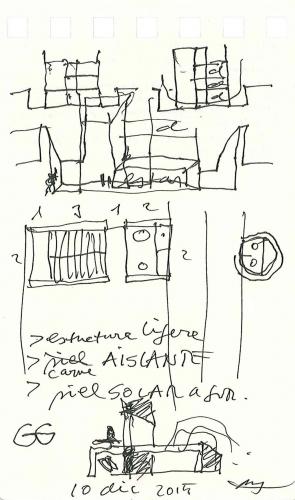 d
d
d
1 3 1 2
2 2
> estructura ligera
> piel AISLANTE
carne
> piel SOLAR
GG
10 dic 2015